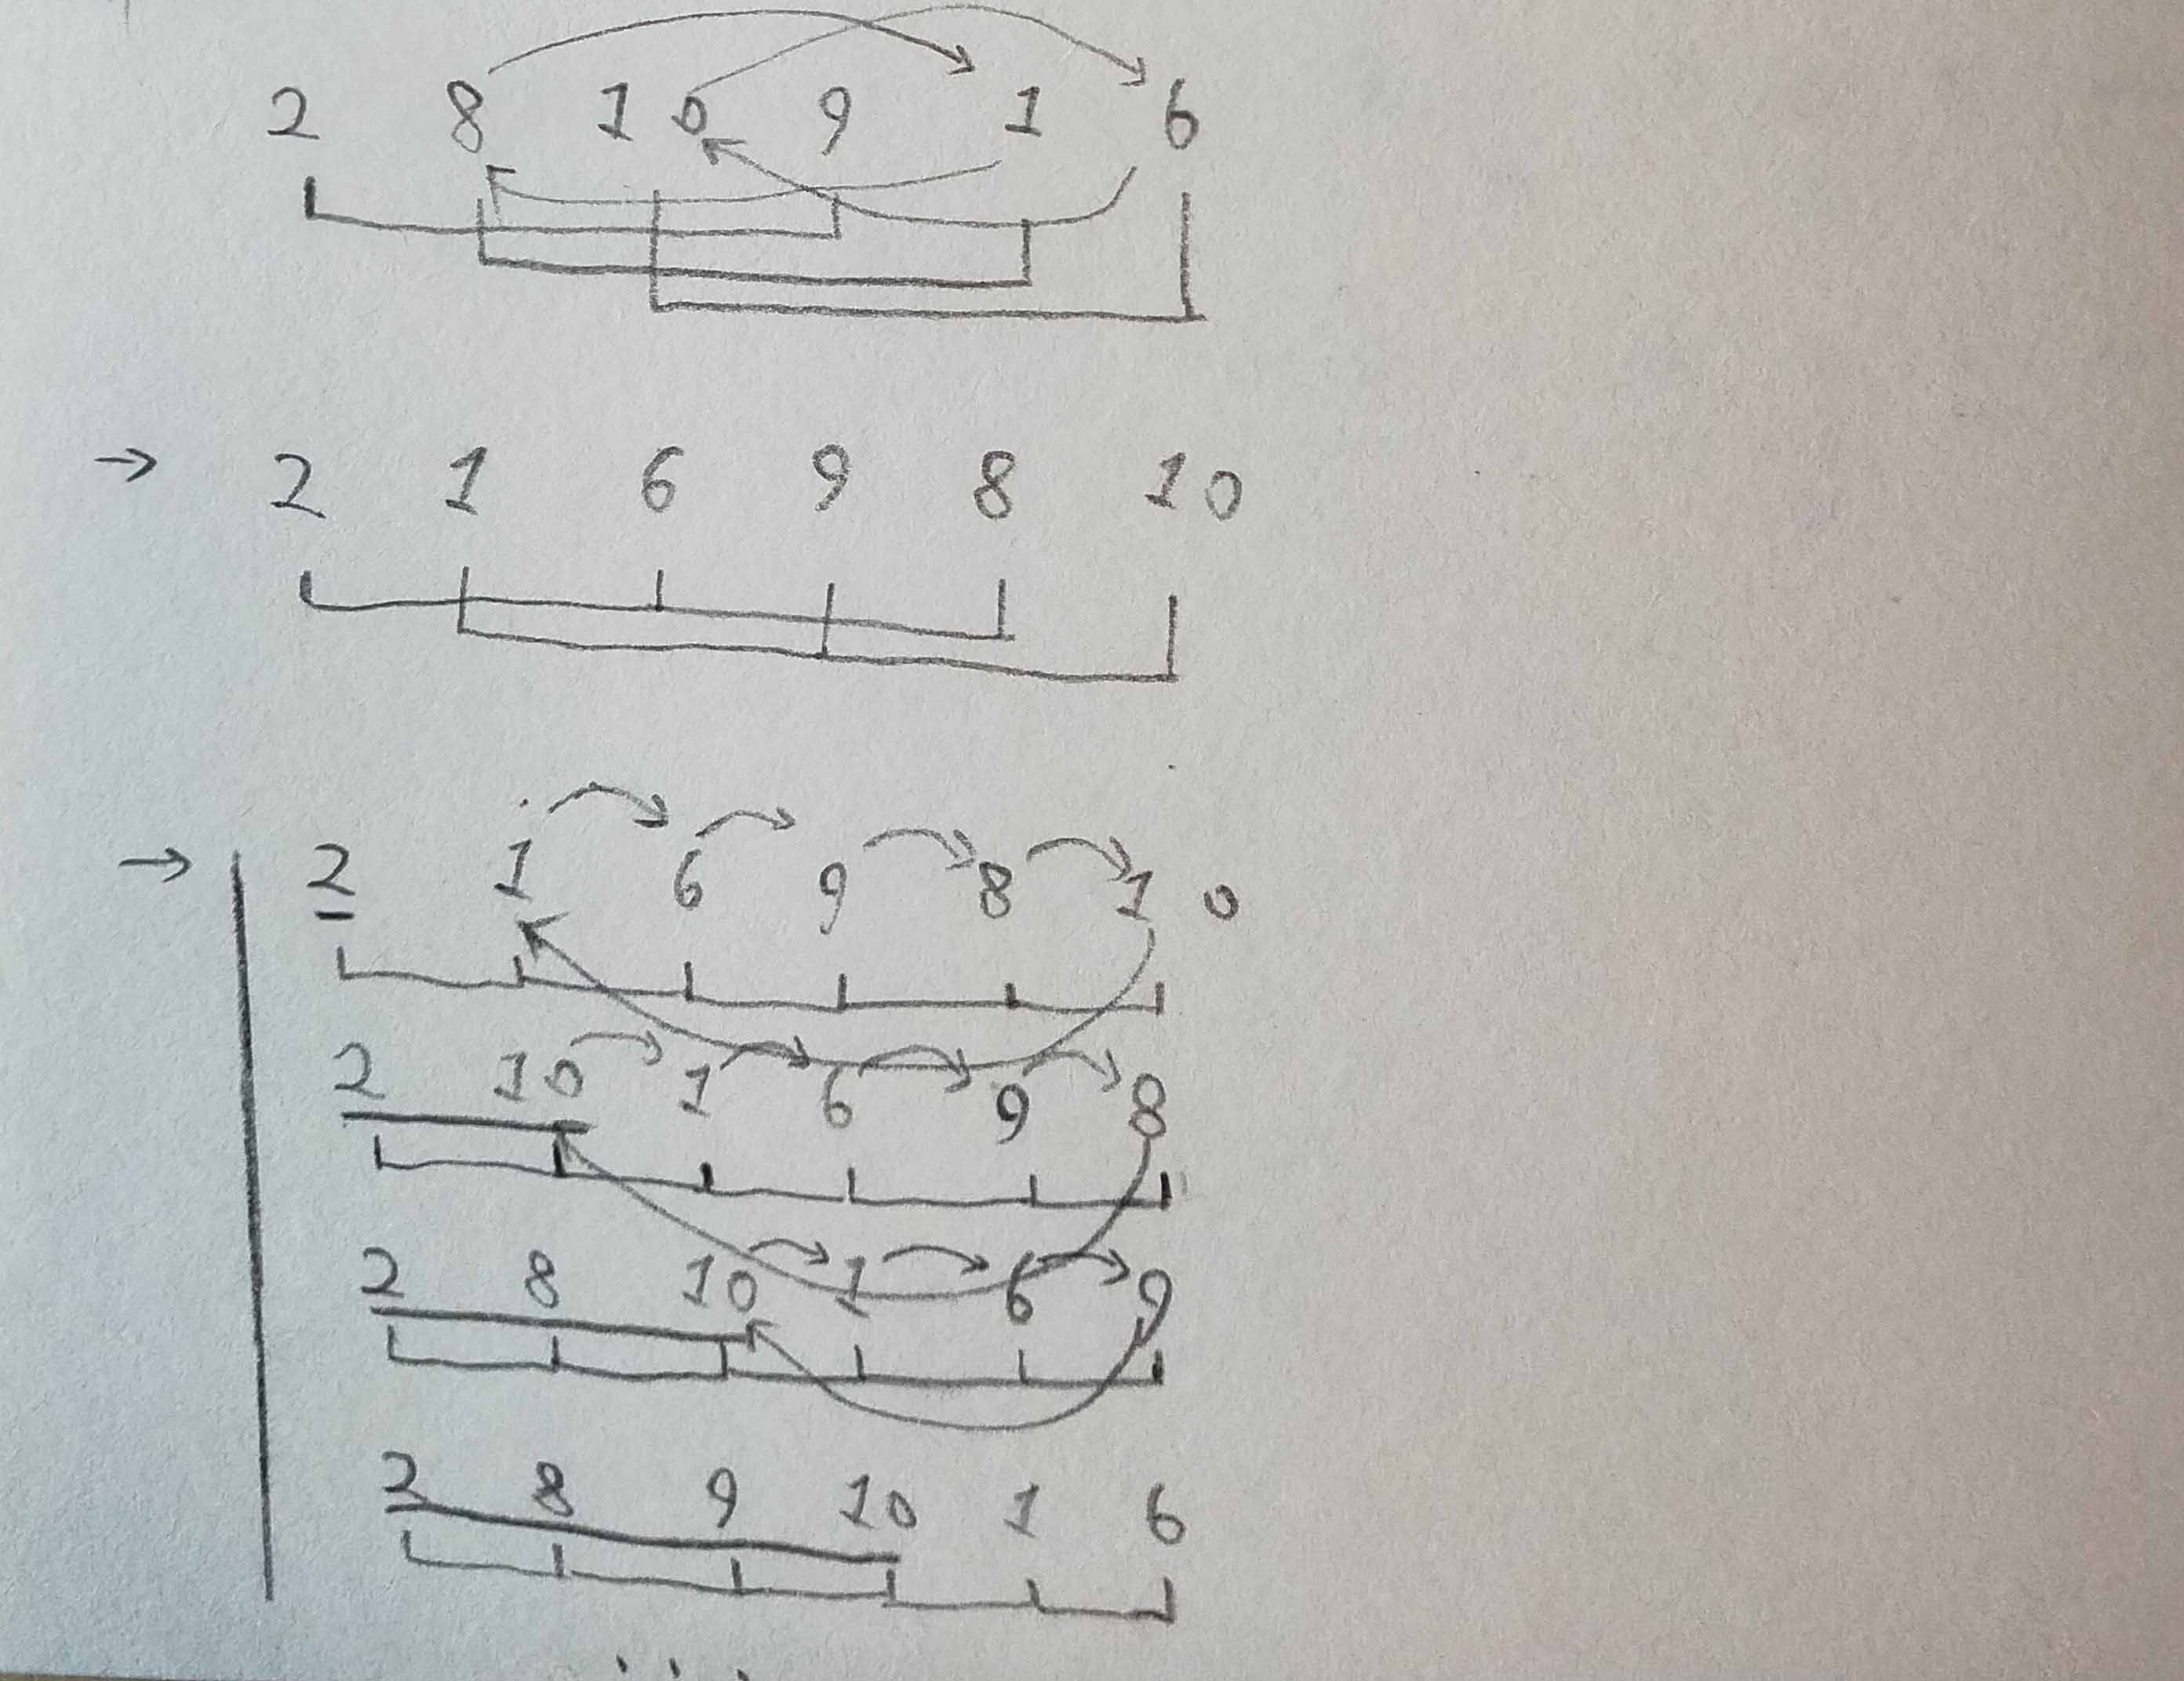 2 8 10 9 1 6
→ 2 1 6 9 8 10
→ 2 1 6 9 8 10
2 10 1 6 9 8
2 8 10 1 6 9
2 8 9 10 1 6
...